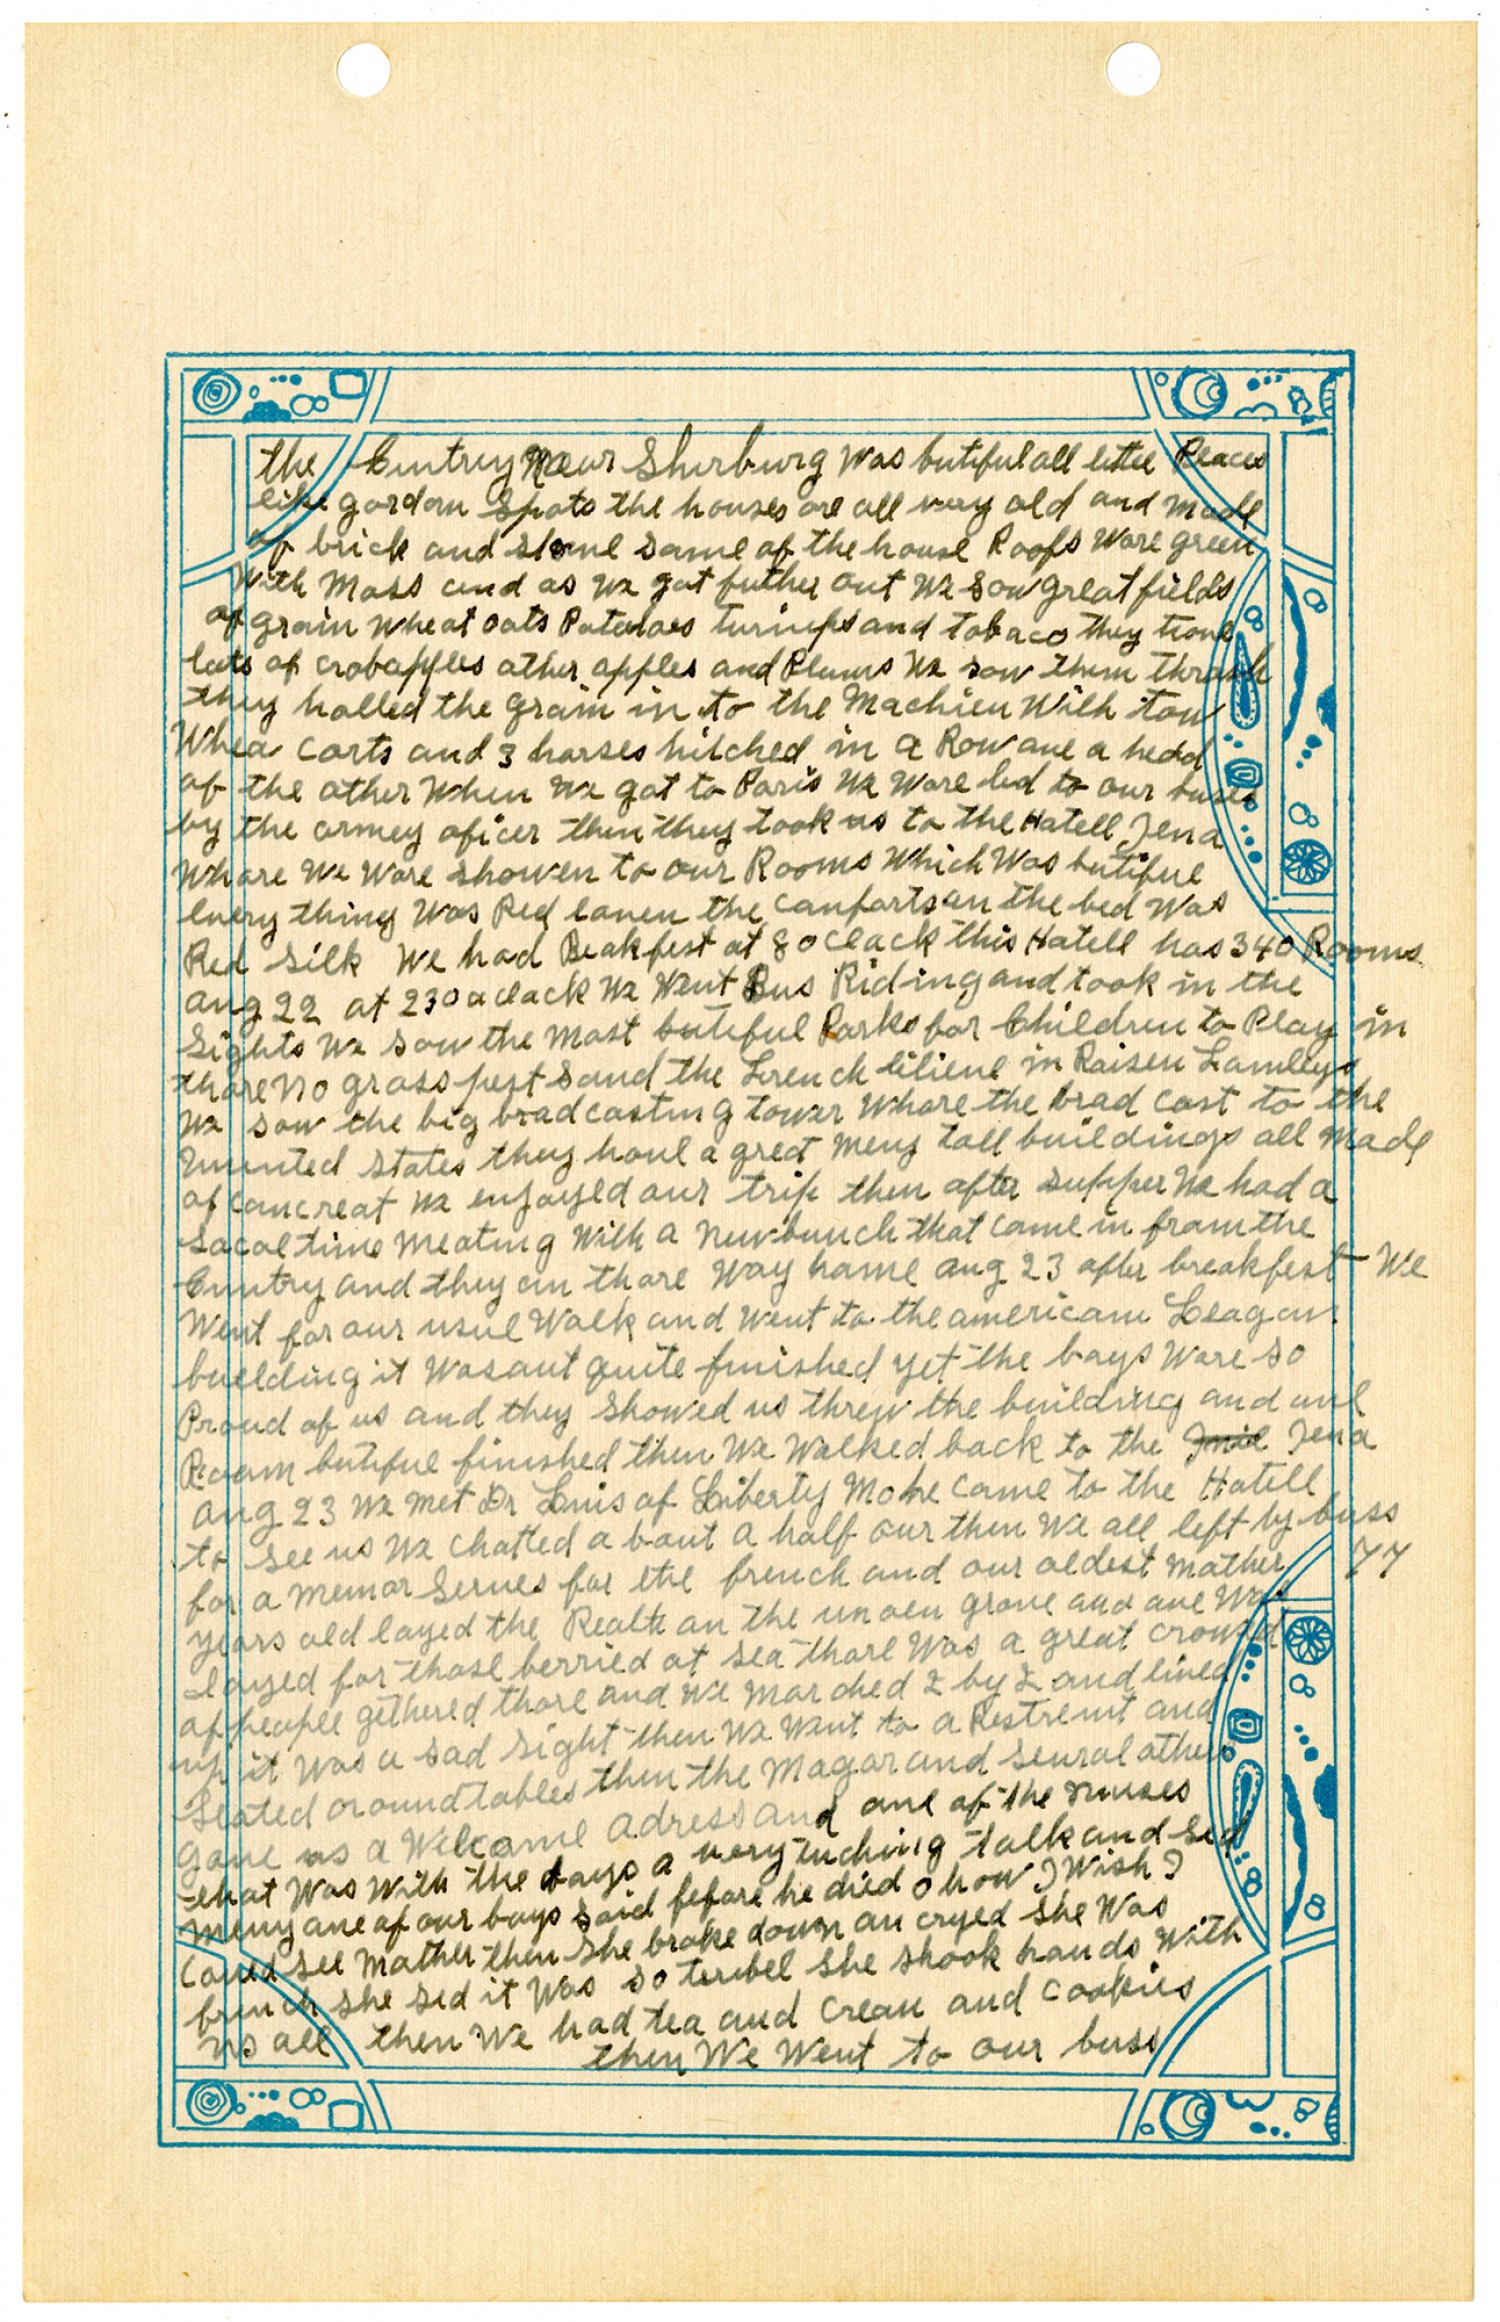 the Cuntrey Near Shirburg Was butiful all little Places
like gardam Spots the houses are all very old and made
of brick and stone same of the house Roofs Ware green
With Moss and as we got futher out We sow great fields
of grain Wheat oats Patatoes turnips and tobaco they
lots of crobapples other apples and Plums We sow them thrash
they halled the grain in to the Machien With tow
Whea carts and 3 horses hitched in a Row one a hedd
of the other When We got to Paris We Ware led to our buses
by the armey oficer then they took us to the Hatell Jena
Whare We Ware showen to our Rooms Which Was butiful
Every thing Was Red even the Canfarts on the bed Was
Red Silk We had Beakfest at 8 o clack this Hatell has 340 Rooms
aug 22 at 230 a clack We Went Bus Riding and took in the
Sights We sow the Most butiful Parks for Children to Play in
thare no grass just sand the French in Raisen Familys
We sow the big bradcasting tower Whare the brad cast to the
Uninted States they have a great Meny tall buildings all Made
of cancreat We enjoyed our trip then after supper We had a
Sacal time Meating With a New bunch that Came in fram the
Cuntry and they on thare Way hame aug 23 after breakfest We
Went for our usul Walk and Went to the american Leagan
buelding it Wasant quite finished yet the bays Ware so
Proud of us and they showed us threw the building and one
Roam butiful finished then We Walked back to the Jena
aug 23 We Met Dr of Liberty Mo he Came to the Hatell
to See us We Chatted a bout a half our then We all left by buss
for a Memor Serves for the french and our oldest Mather 77
years old layed the Reath an the unoen grave and one Was
Layed for those berried at sea thare Was a great crowed
of people gethered thare and We Marched 2 by 2 and lined
up it Was a sad Sight then We Went to a Restrent and
Seated around tables then the Magar and seural others
gave us a Welcome adress and one of the nurses
that Was With the bays a very tuching talk and sed
Meny one of our boys said fefore he died o how I Wish I
Coued see Mather then she broke down an cryed she Was
french she sed it Was so teribel she shook hands With
us all then We had tea and Cream and Cookies
then We Went to our buss